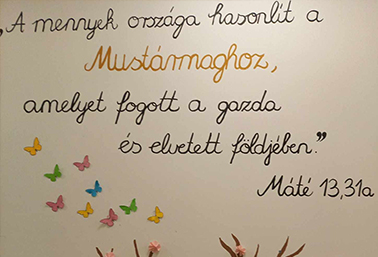 „A mennyek országa hasonlít a
Mustármaghoz,
amelyet fogott a gazda
és elvetett földjében.”
Máté 13,31a